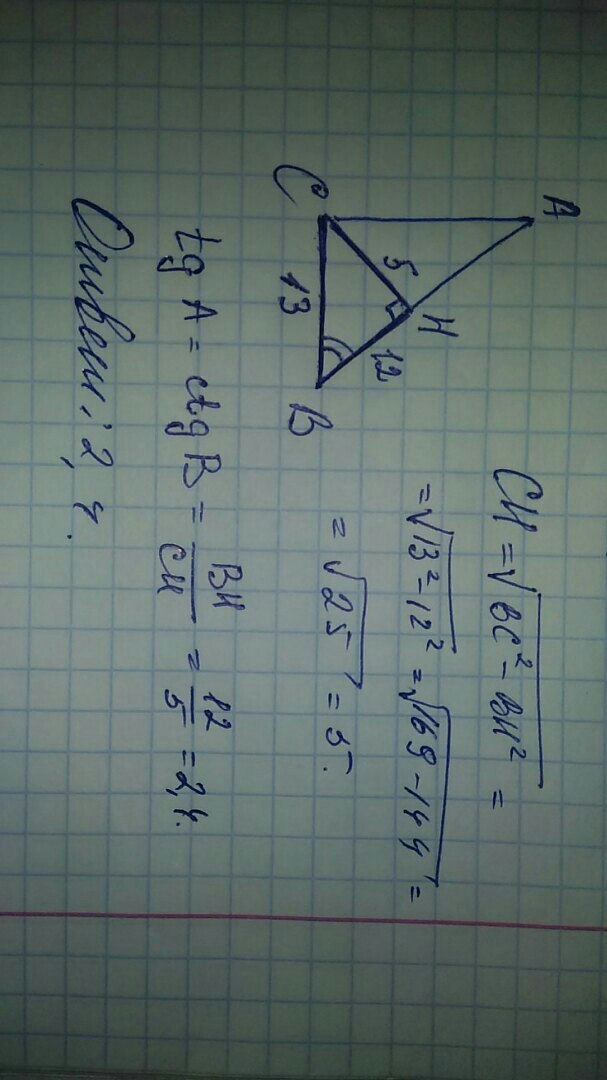 A
H
5
12
C
13
B
CH = √BC² - BH² =
= √13² - 12² = √169 - 144 =
= √25 = 5.
tg A = ctg B = BH/CH = 12/5 = 2,4.
Ответ: 2,4.